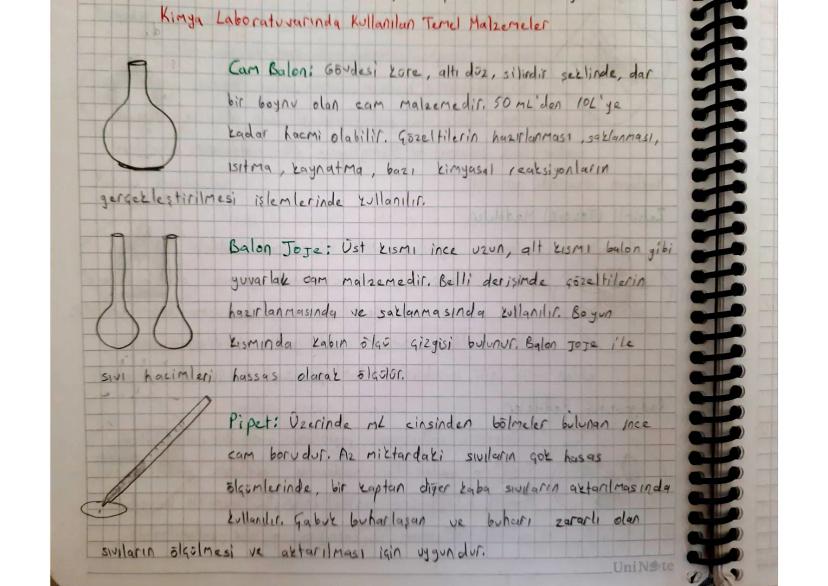 Kimya Laboratuvarında Kullanılan Temel Malzemeler
Cam Balon: Gövdesi küre, altı düz, silindir şeklinde, dar
bir boynu olan cam malzemedir. 50 mL'den 10L'ye
kadar hacmi olabilir. Çözeltilerin hazırlanması, saklanması,
ısıtma, kaynatma, bazı kimyasal reaksiyonların
gerçekleştirilmesi işlemlerinde kullanılır.
Balon Joje: Üst kısmı ince uzun, alt kısmı balon gibi
yuvarlak cam malzemedir. Belli derişimde çözeltilerin
hazırlanmasında ve saklanmasında kullanılır. Boyun
kısmında kabın ölçü çizgisi bulunur. Balon joje ile
sıvı hacimleri hassas olarak ölçülür.
Pipet: Üzerinde mL cinsinden bölmeler bulunan ince
cam borudur. Az miktardaki sıvıların çok hasas
ölçümlerinde, bir kaptan diğer kaba sıvıların aktarılmasında
kullanılır. Çabuk buharlaşan ve buharı zararlı olan
sıvıların ölçülmesi ve aktarılması için uygundur.
UniNote